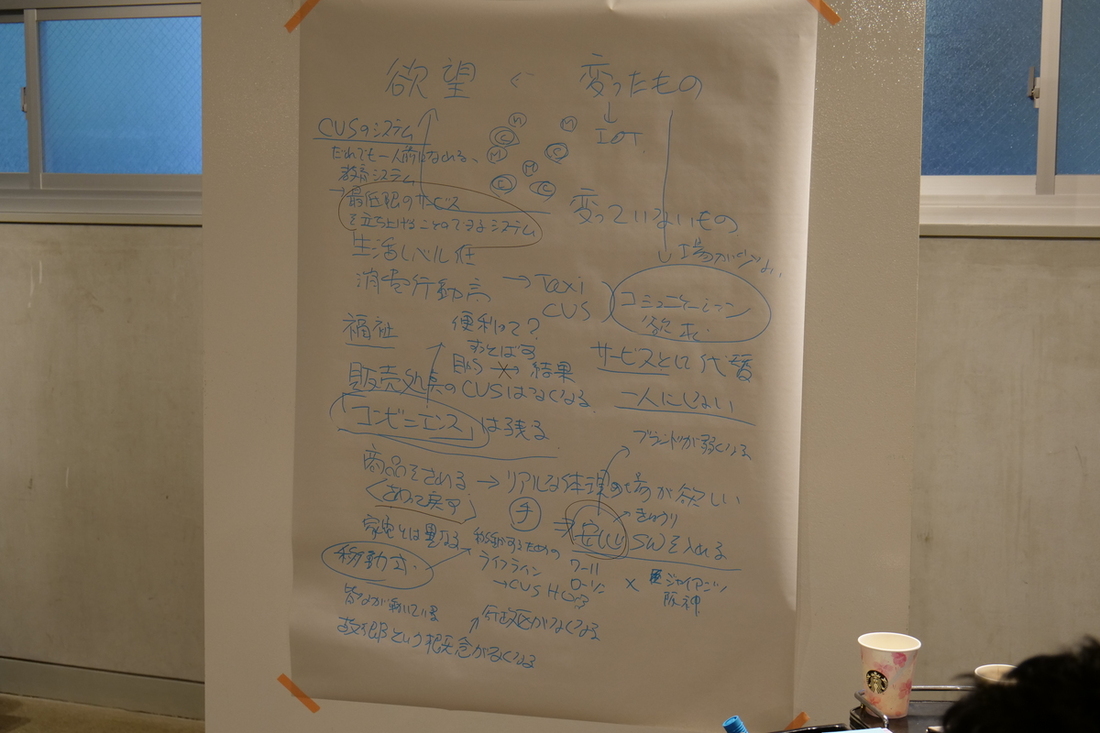 欲望 < 変ったもの
↓
IOT
CVSのシステム
だれでも一人前になれる、
教育システム
→最低限のサービス
を立ち上げることのできるシステム
変っていないもの
生活レベル 低
消費行動高 → Taxi
CVS
場が少ない
コミュニケーション
欲求
福祉
便利って?
すっとばす
サービスとして代替
目的 → 結果
販売拠点のCVSはなくなる
一人にしない
「コンビニエンス」は残る
ブランド力が弱くなる
商品をさわる → リアルな体現の場が欲しい
さわって戻す
手
きゅうり
⇒ 安心 SWを入れる
家電とは異なる
移動するための
ライフライン
7-11
ローソン
×
ジャイアンツ
阪神
移動式
→CVS
皆なが動いている
行政区がなくなる
故郷という概念がなくなる